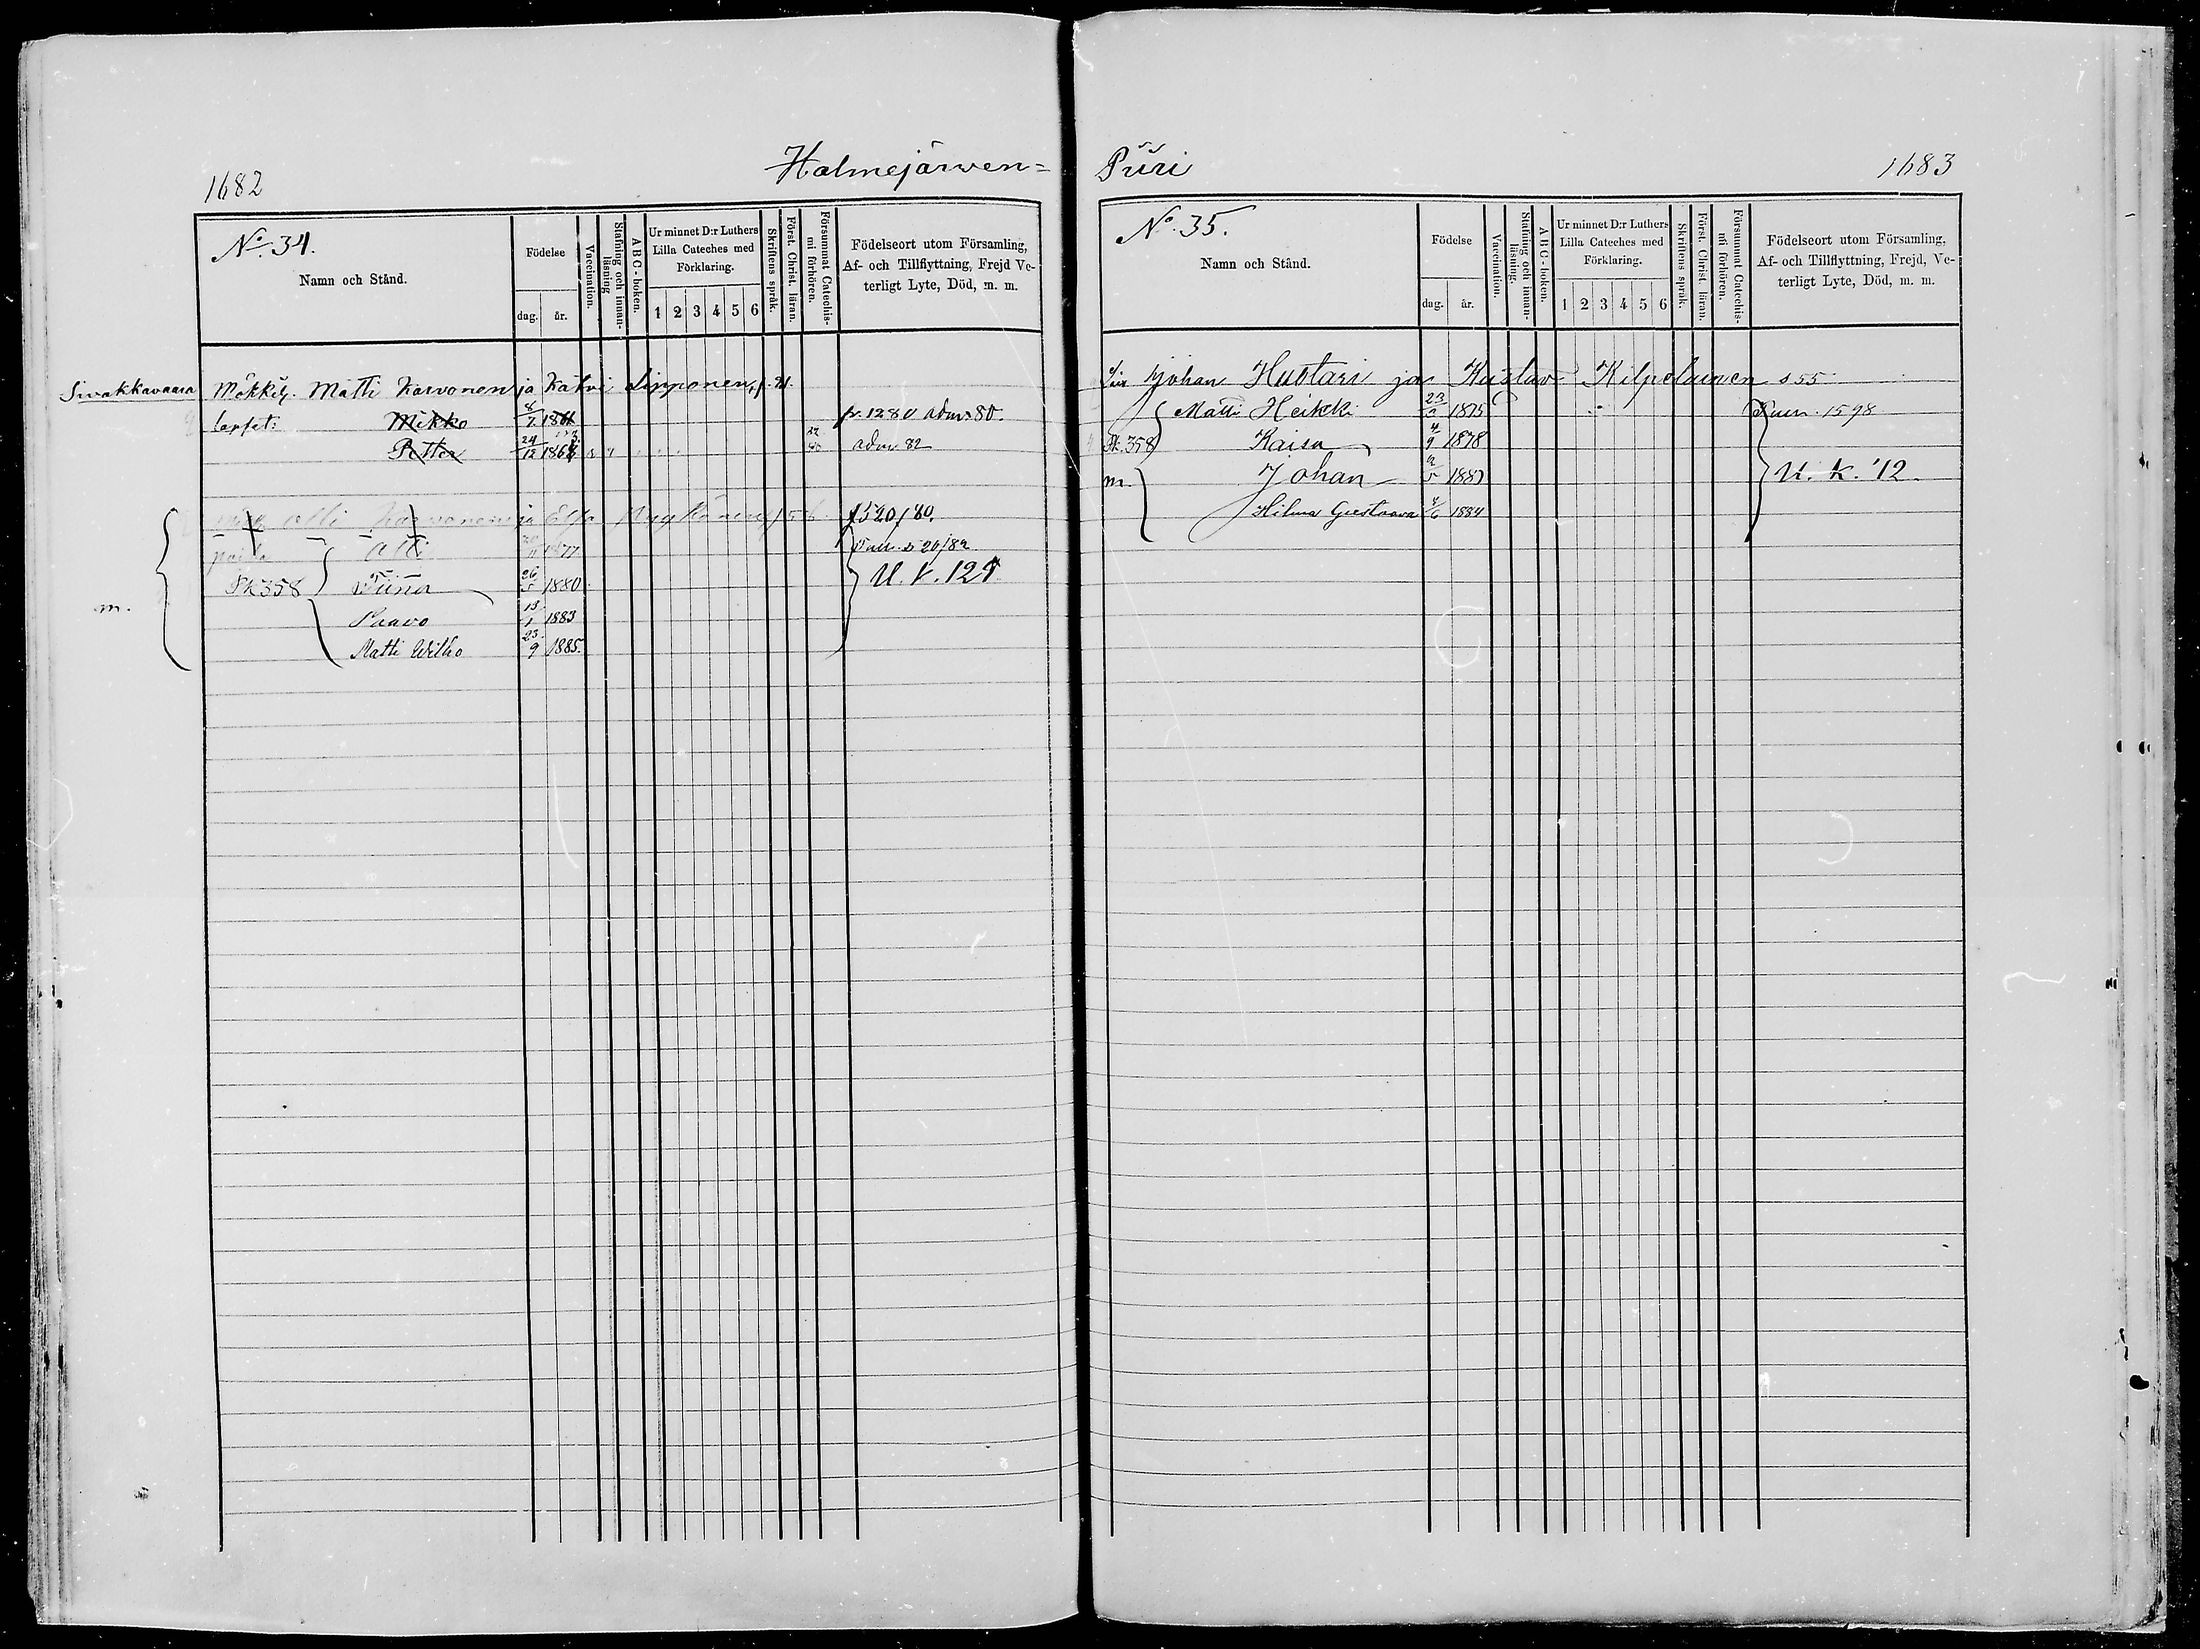 1682
Halmejärwen=
No. 34.
Namn och Stånd.
Födelse
dag.
år.
Vaccination.
Stafning och innan-
läsning
ABC-boken.
Ur minnet D:r Luthers
Lilla Cateches med
Förklaring.
1 2 3 4 5 6
Skriftens språk.
Först. Christ. läran.
Försummat Catechis-
mi förhören.
Födelseort utom Församling,
Af- och Tillflyttning, Frejd Ve-
terligt Lyte, Död, m. m.
Sivakkavaara Mökkil. Matti Karvonen ja Katri Lipponen
lapset: Mikko 8/7 p. 1280 adm. 80.
Petter 24/12 adm 82
Olli Karvonen ja Elsa 1520/80.
Olli 1877
Pk 358 Wiina 26/5 1880 U. K. 121
m. Paavo 1883
Matti Wilho 23/9 1885.
Piiri
1683
No. 35.
Namn och Stånd.
Födelse
dag.
år.
Vaccination.
Stafning och innan-
läsning.
ABC-boken.
Ur minnet D:r Luthers
Lilla Cateches med
Förklaring.
1 2 3 4 5 6
Skriftens språk.
Först. Christ. läran.
Försummat Catechis-
mi förhören.
Födelseort utom Församling,
Af- och Tillflyttning, Frejd, Ve-
terligt Lyte, Död, m. m.
Johan Hustari ja Kustav Kilpeläinen s 55
Matti Heikki 23 1875 1598
Pk. 358 Kaisa 4/9 1878
m. Johan U. K. '12.
Hilma Gustaava 4/6 1884